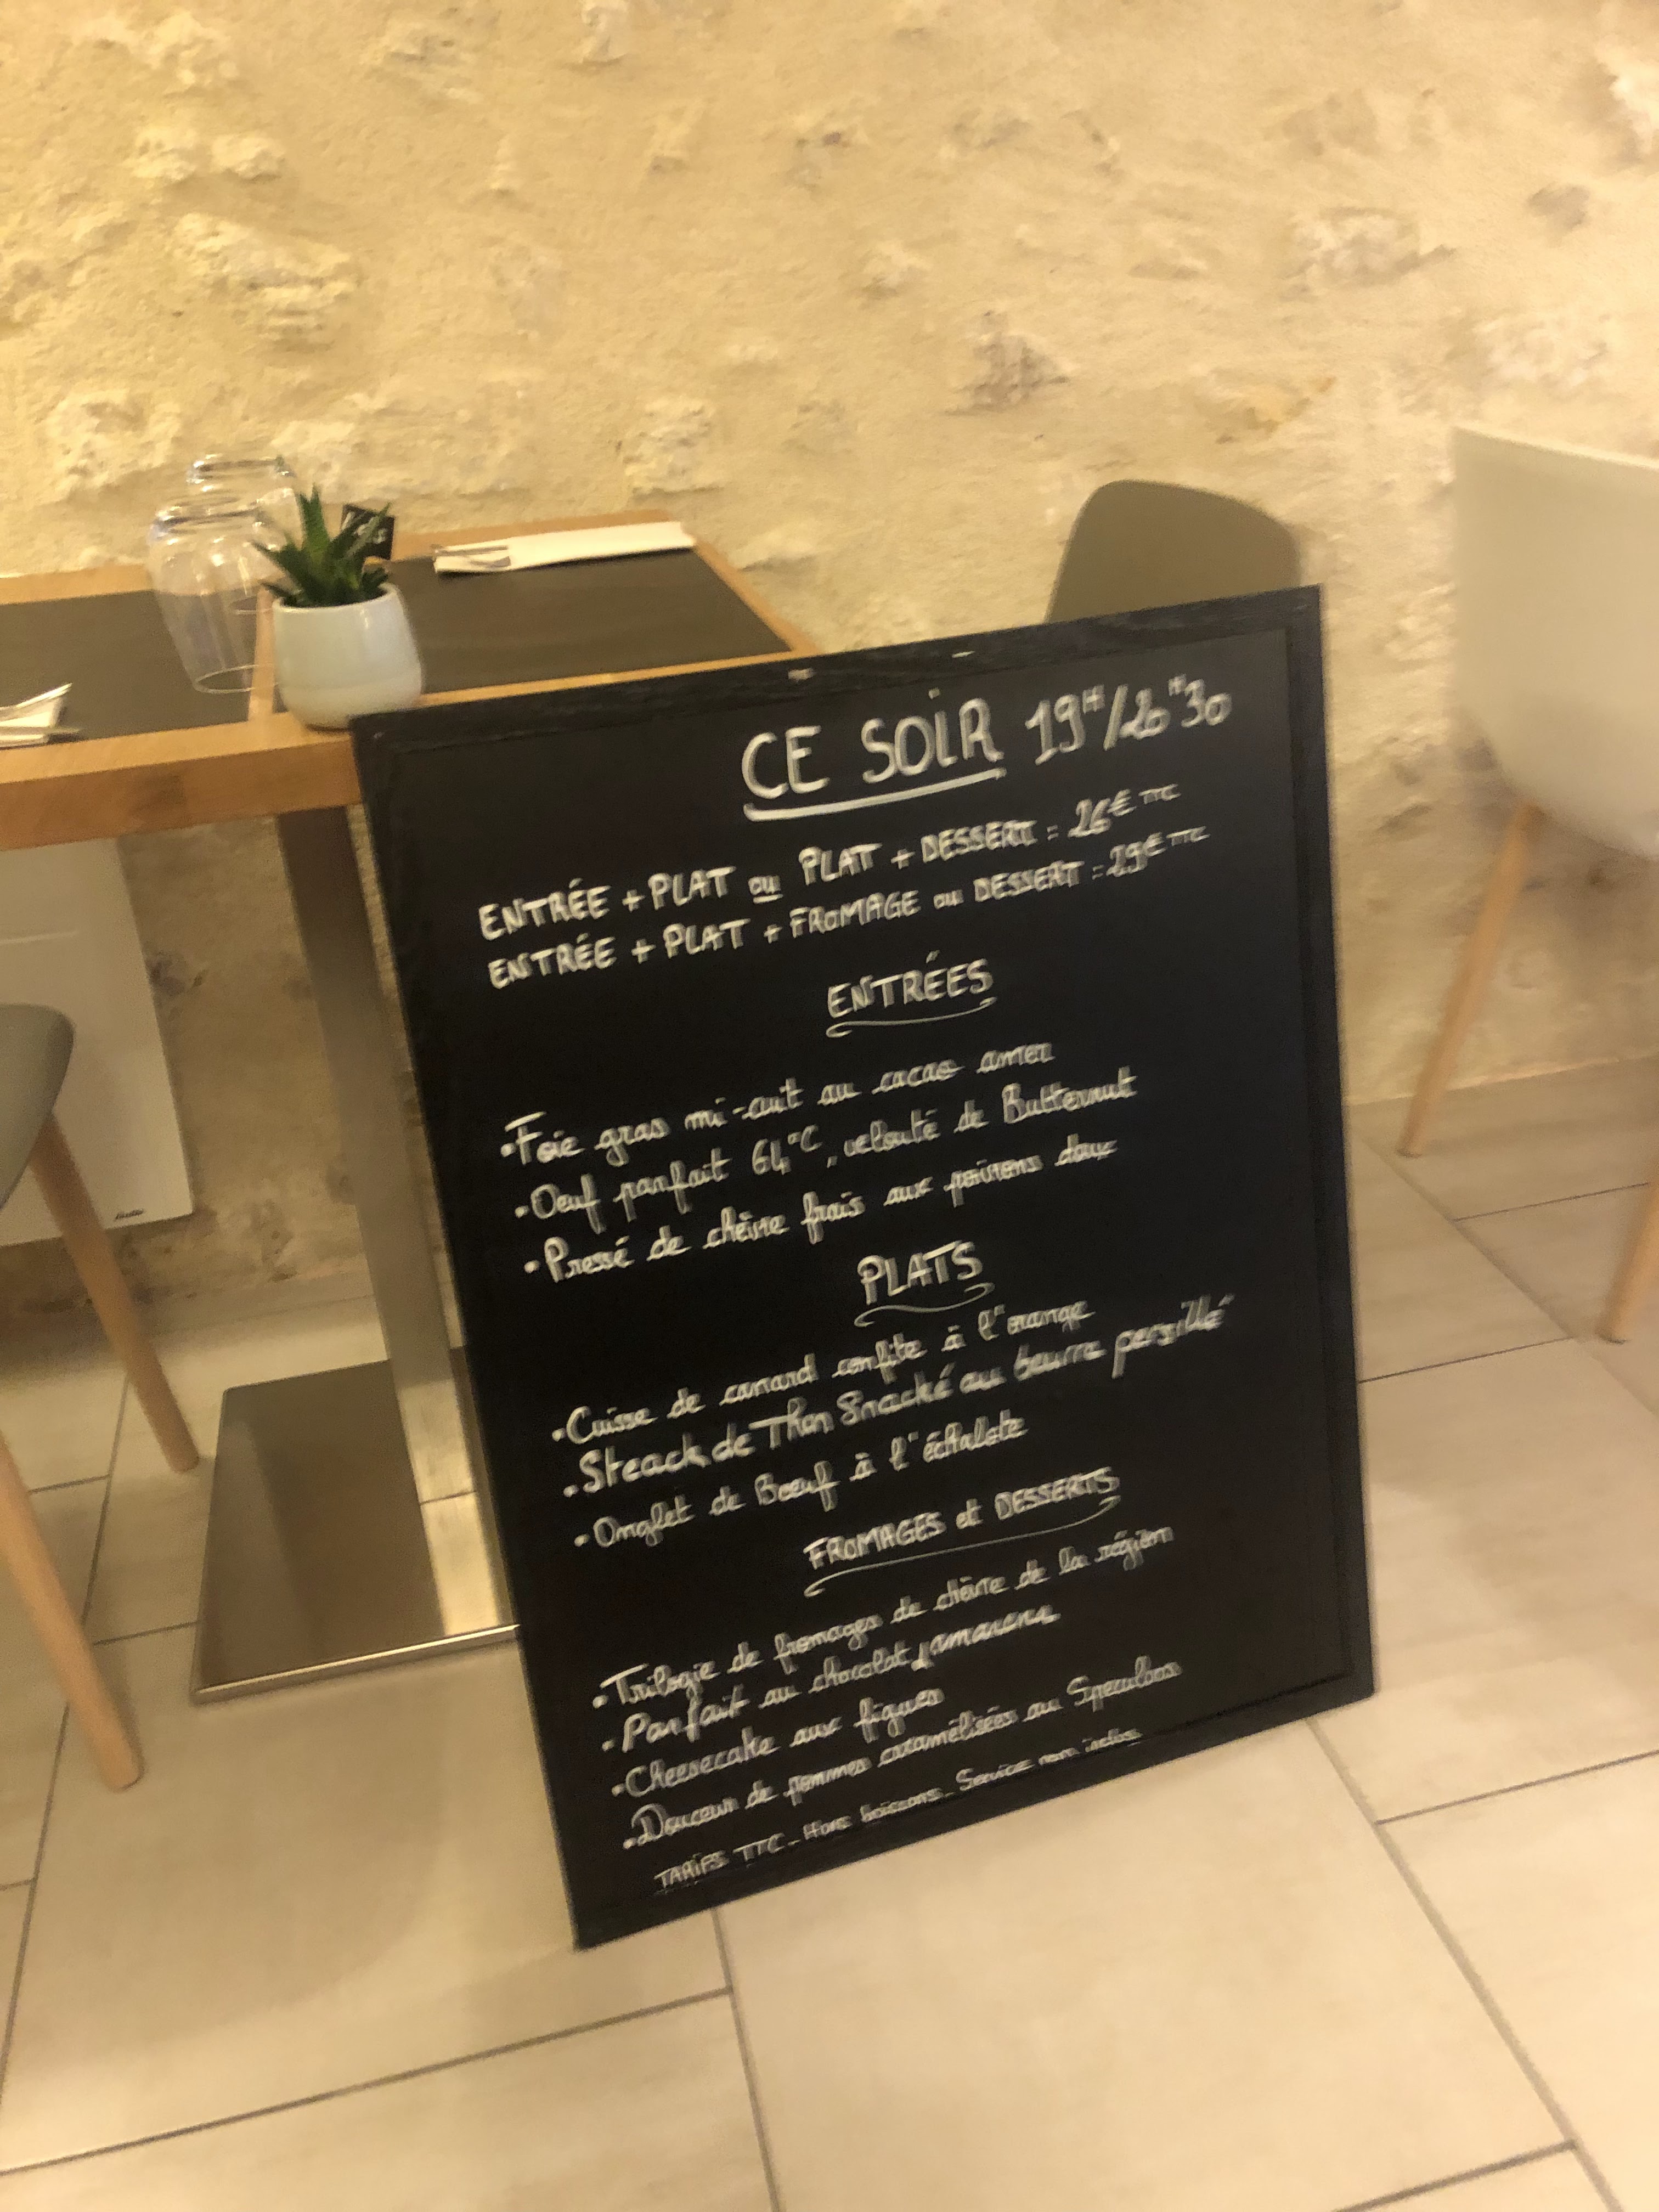 CE SOIR 19H/20H30
ENTRÉE + PLAT ou PLAT + DESSERT = 26€ TTC
ENTRÉE + PLAT + FROMAGE ou DESSERT = 29€ TTC
ENTRÉES
• Foie gras mi-cuit au cacao amer
• Oeuf parfait 64°C, velouté de Butternut
• Pressé de chèvre frais aux poivrons doux
PLATS
• Cuisse de canard confite à l'orange
• Steack de Thon Snacké au beurre persillé
• Onglet de Boeuf à l'échalote
FROMAGES et DESSERTS
• Trilogie de fromages de chèvre de la région
• Parfait au chocolat, amarena
• Cheesecake aux figues
• Douceur de pommes caramélisées au Speculoos
TARIFS TTC - Hors boissons - Service non inclus